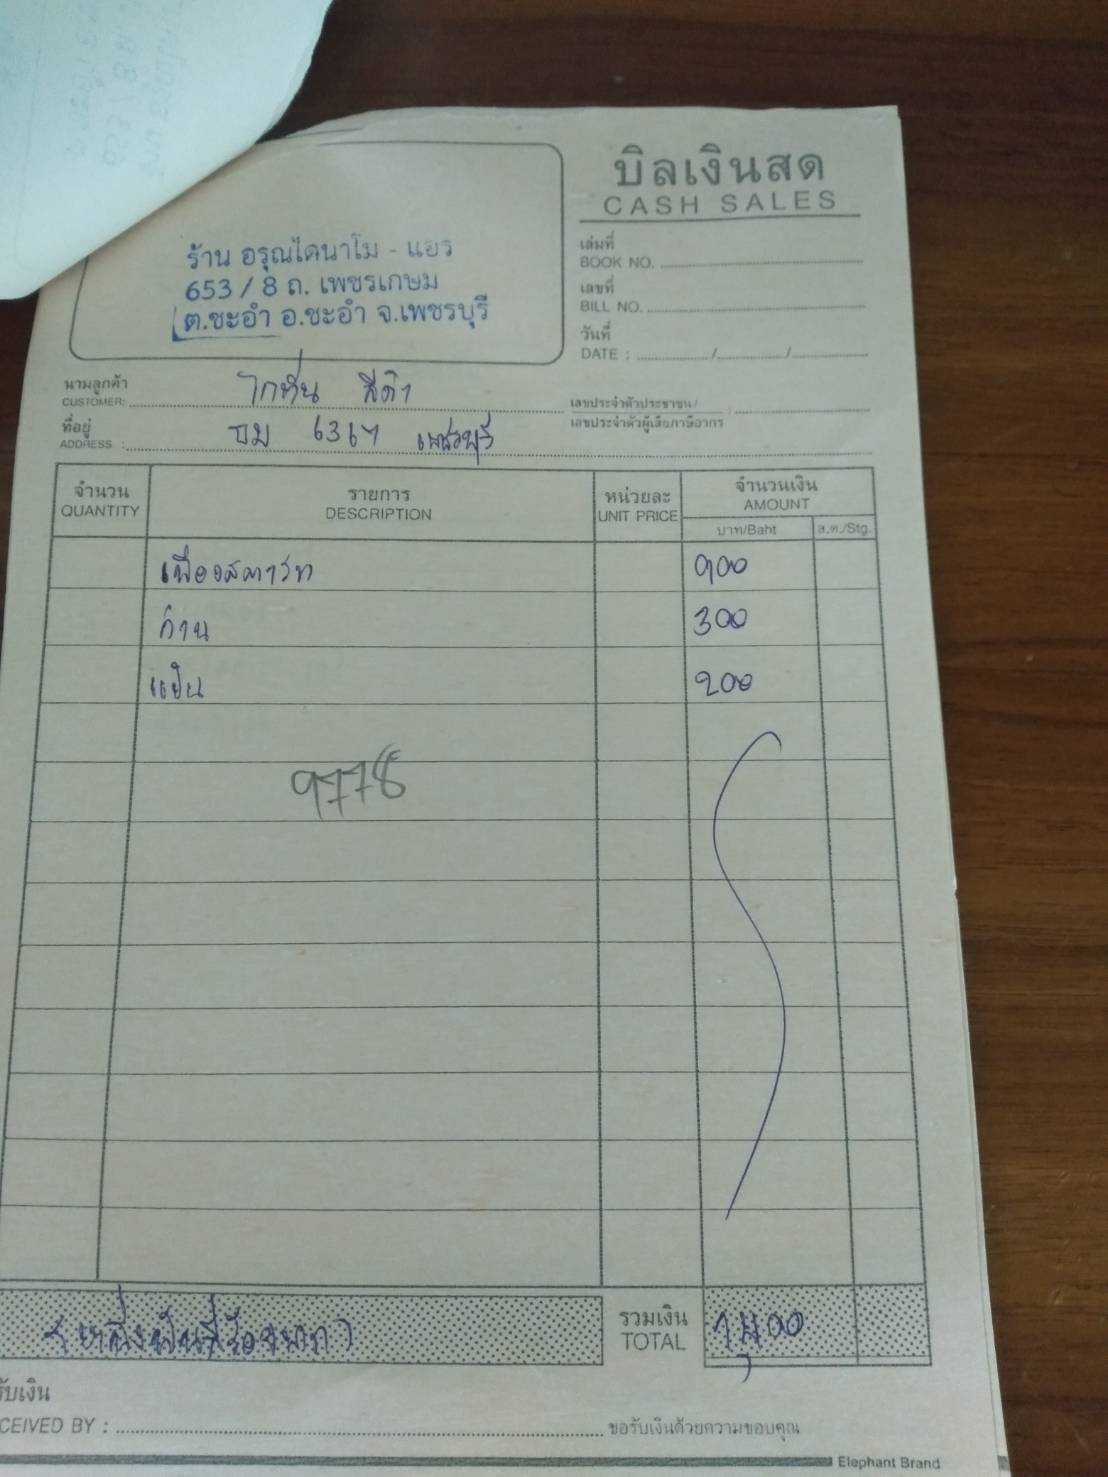 บิลเงินสด
CASH SALES
ร้าน อรุณไดนาโม - แอร
653 / 8 ถ. เพชรเกษม
ต.ชะอำ อ.ชะอำ จ.เพชรบุรี
เล่มที่
BOOK NO.
เลขที่
BILL NO.
วันที่
DATE : / /
นามลูกค้า
CUSTOMER: สีดำ
เลขประจำตัวประชาชน /
เลขประจำตัวผู้เสียภาษีอากร :
ที่อยู่
ADDRESS : เพชรบุรี
จำนวน รายการ หน่วยละ จำนวนเงิน
QUANTITY DESCRIPTION UNIT PRICE AMOUNT
บาท/Baht ส.ต./Stg.
เฟืองสตาร์ท 900
ก้าน 300
แปั้น 200
9778
(หนึ่งพันสี่ร้อยบาท) รวมเงิน 1,400
TOTAL
รับเงิน
CEIVED BY : ขอรับเงินด้วยความขอบคุณ
Elephant Brand